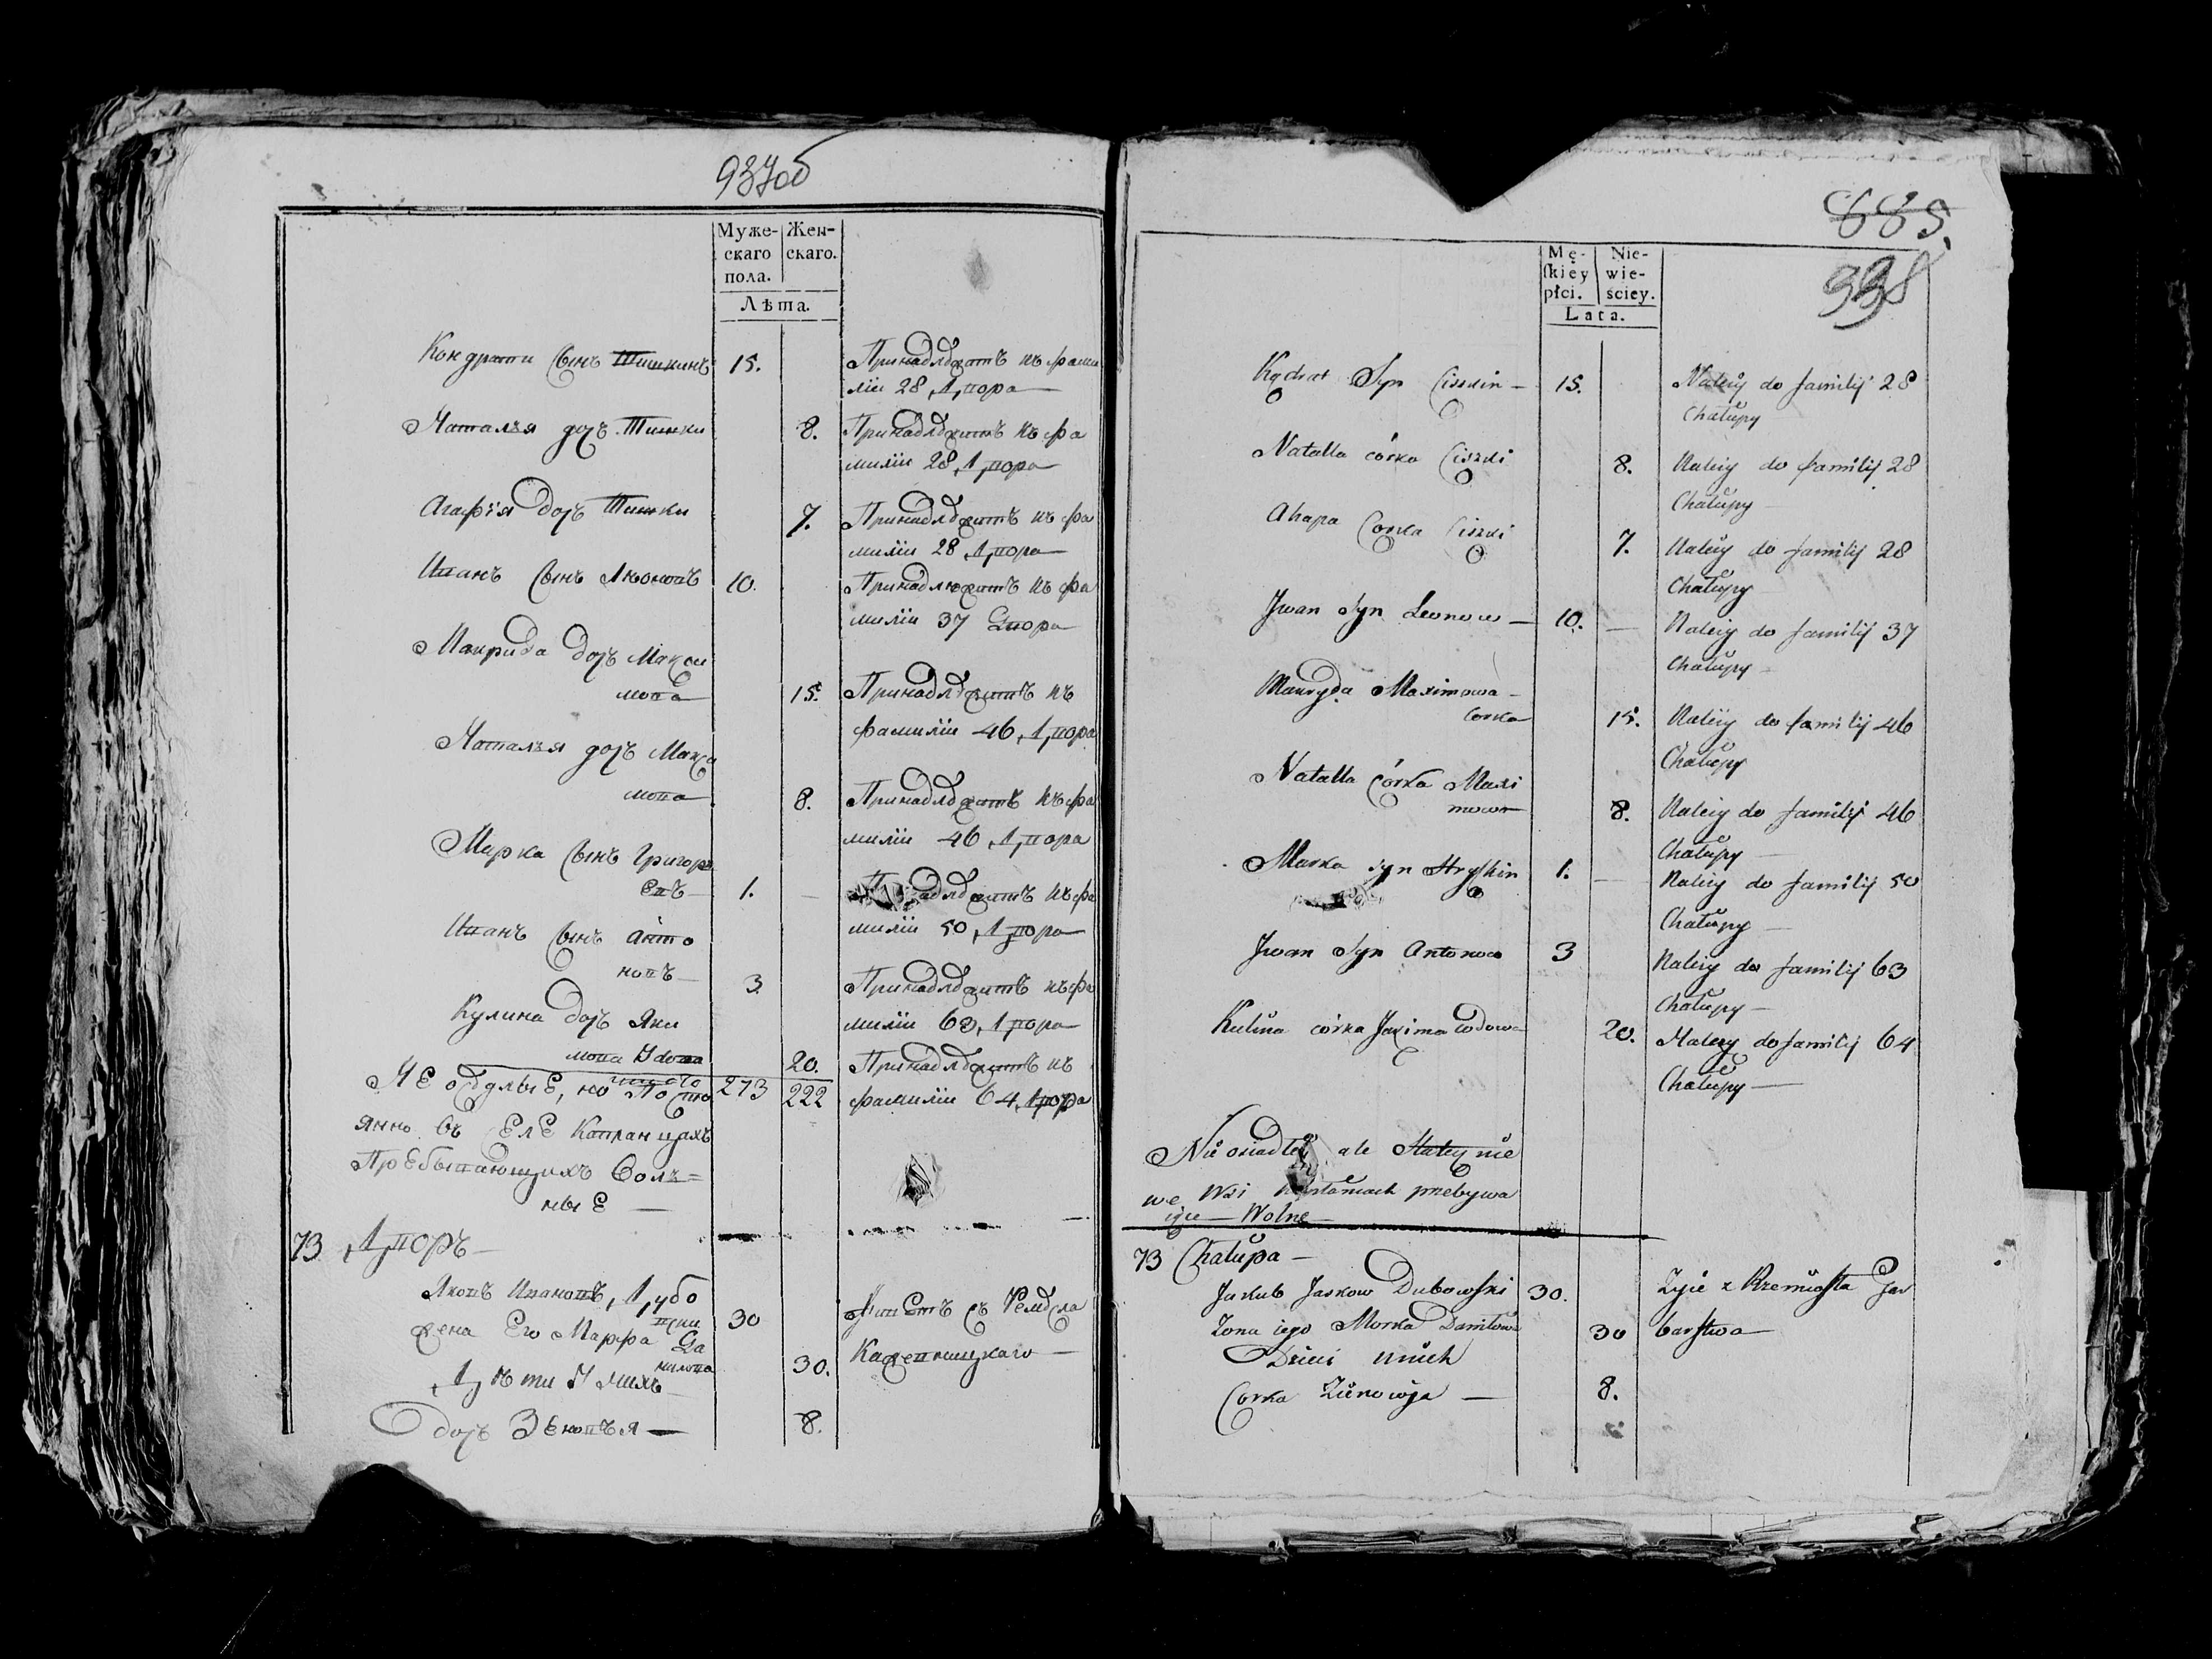 937об
Муже-
скаго
пола.
Жен-
скаго.
Лѣта.
Кондрати сынъ Тишкинъ 15. Принадлѣжитъ къ фами
лiи 28 двора
Наталья дочъ Тишки 8. Принадлѣжитъ къ фа
милiи 28 двора
Агафiя дочъ Тишки 7. Принадлѣжитъ къ фа
милiи 28 двора
Иванъ сынъ Лѣоновъ 10. Принадлежитъ къ фа
милiи 37 двора
Маврида дочъ Макси
мова 15. Принадлѣжитъ къ
фамилiи 46 двора
Наталья дочъ Макси
мова 8. Принадлѣжитъ къ фа
милiи 46 двора
Марка сынъ Григорь
евъ 1. Принадлѣжитъ къ фа
милiи 50 двора
Иванъ сынъ Анто
новъ 3. Принадлѣжитъ къ фа
милiи 63 двора
Кулина дочъ Яки
мова Удова 20. Принадлѣжитъ къ
число 273 222 фамилiи 64 двора
Не осѣдлые, но Посто
янно въ селе
Пребывающихъ Воль=
ные
73 Дворъ
Яковъ Ивановъ Дубо
вски 30 Живетъ съ Ремѣсла
жена Его Марфа Да
нилова 30. Кожевницкаго
Дѣти У нихъ
дочъ Зеновья 8.
885.
938
Mę-
skiéy
płci.
Nie-
wie-
ściey.
Lata.
Kądrat Syn Ciszkin 15. Należy do familij 28
Chałupy
Natalla córka Ciszki 8. Należy do familij 28
Chałupy
Ahapa Corka Ciszki 7. Należy do familij 28
Chałupy
Jwan Syn Leonow 10. Należy do familij 37
Chałupy
Mawryda Maximowa
Corka 15. Należy do familij 46
Chałupy
Natalla Córka Maxi
mowa 8. Należy do familij 46
Chałupy
Marka syn Hryszkin 1. Należy do familij 50
Chałupy
Jwan Syn Antonow 3 Należy do familij 63
Chałupy
Kulina córka Jakima wdowa 20. Należy do familij 64
Chałupy
Nie osiadłe ale Statecznie
we Wsi przebywa
iące Wolne
73 Chałupa
Jakub Jaskow Dubowski 30. Zyie z Rzemiosła Gar
Zona iego Morka Daniłowa 30 barstwa
Dzieci u nich
Corka Zienowija 8.